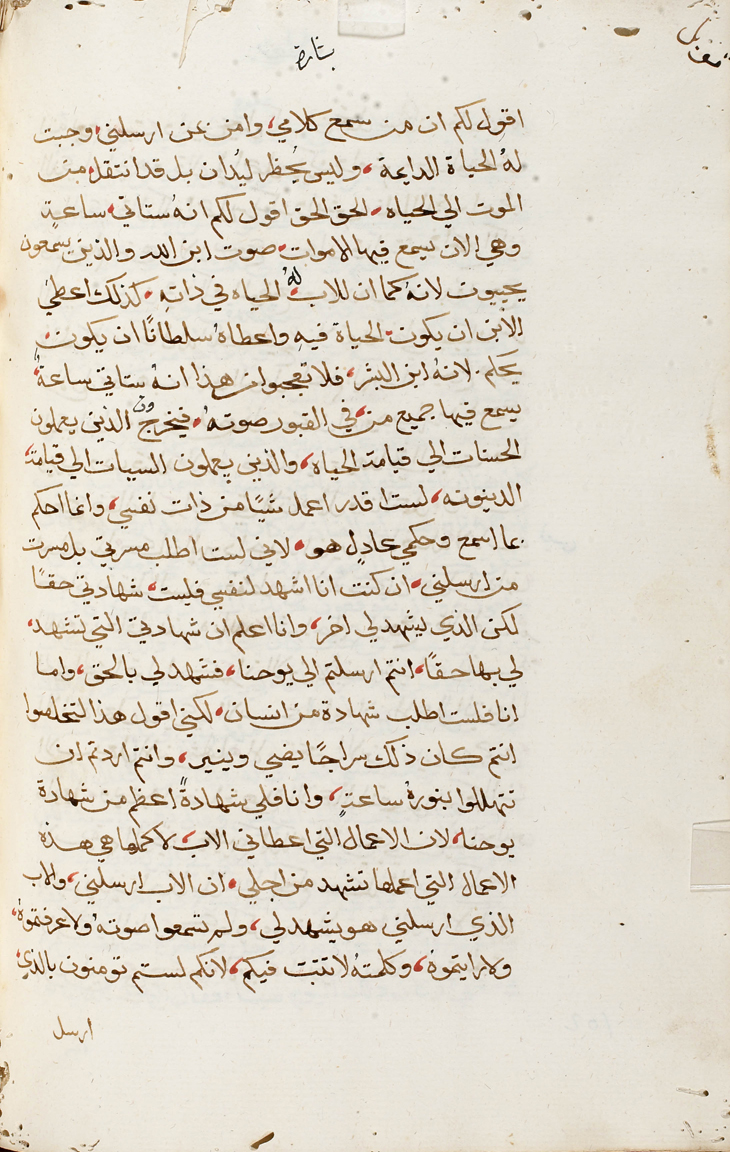 بشارة
مقابل
اقول لكم ان من سمع كلامي، وامن بمن ارسلني، وجبت
لهُ الحياة الدايمة، وليس يُحظر ليُدان بل قد انتقل من
الموت الي الحياه، الحق الحق اقول لكم انهُ ستاتي، ساعةٍ
وهي الان يسمع فيها الاموات، صوت ابن الله والذين يسمعون
يحييون لانهُ كما ان للاب لهُ الحياه في ذاتهِ، كذلك اعطي
الابن ان يكون، الحياة فيهِ واعطاهُ سلطانًا ان يكون،
يحكم، لانهُ ابن البشر، فلا تعجبوا من هذا انهُ ستاتي ساعةً،
يسمع فيها جميع من، في القبور صوتهُ، فيخرجون الذين يعملون
الحسنات الي قيامة الحياه، والذين يعملون السيات الي قيامة،
الدينونه، لست اقدر اعمل شيًا من ذات نفسي، وانما احكم
بما اسمع وحكمي عادلٍ هو، لاني لست اطلب مسرتي بل مسرت
من ارسلني، ان كنت انا اشهد لنفسي فليست، شهادتي حقًا
لكن الذي يشهد لي اخر، وانا اعلم ان شهادتي التي تشهد،
لي بها حقًا، انتم ارسلتم الي يوحنا، فشهد لي بالحق، واما
انا فلست اطلب شهادة من انسان، لكني اقول هذا لتخلصوا
انتم كان ذلك سراجًا يضي وينير، وانتم اردتم ان
تتهللوا بنورهُ ساعتٍ، وانا فلي شهادةً اعظم من شهادة
يوحنا، لان الاعمال التي اعطاني الاب، لاكملها هي هذه
الاعمال التي اعملها تشهد من اجلي، ان الاب ارسلني، والاب
الذي ارسلني هو يشهد لي، ولم تسمعوا صوتهُ ولا عرفتموهُ،
ولا رايتموهُ، وكلمتهُ لا تثبت فيكم، لانكم لستم تومنون بالذي،
ارسل